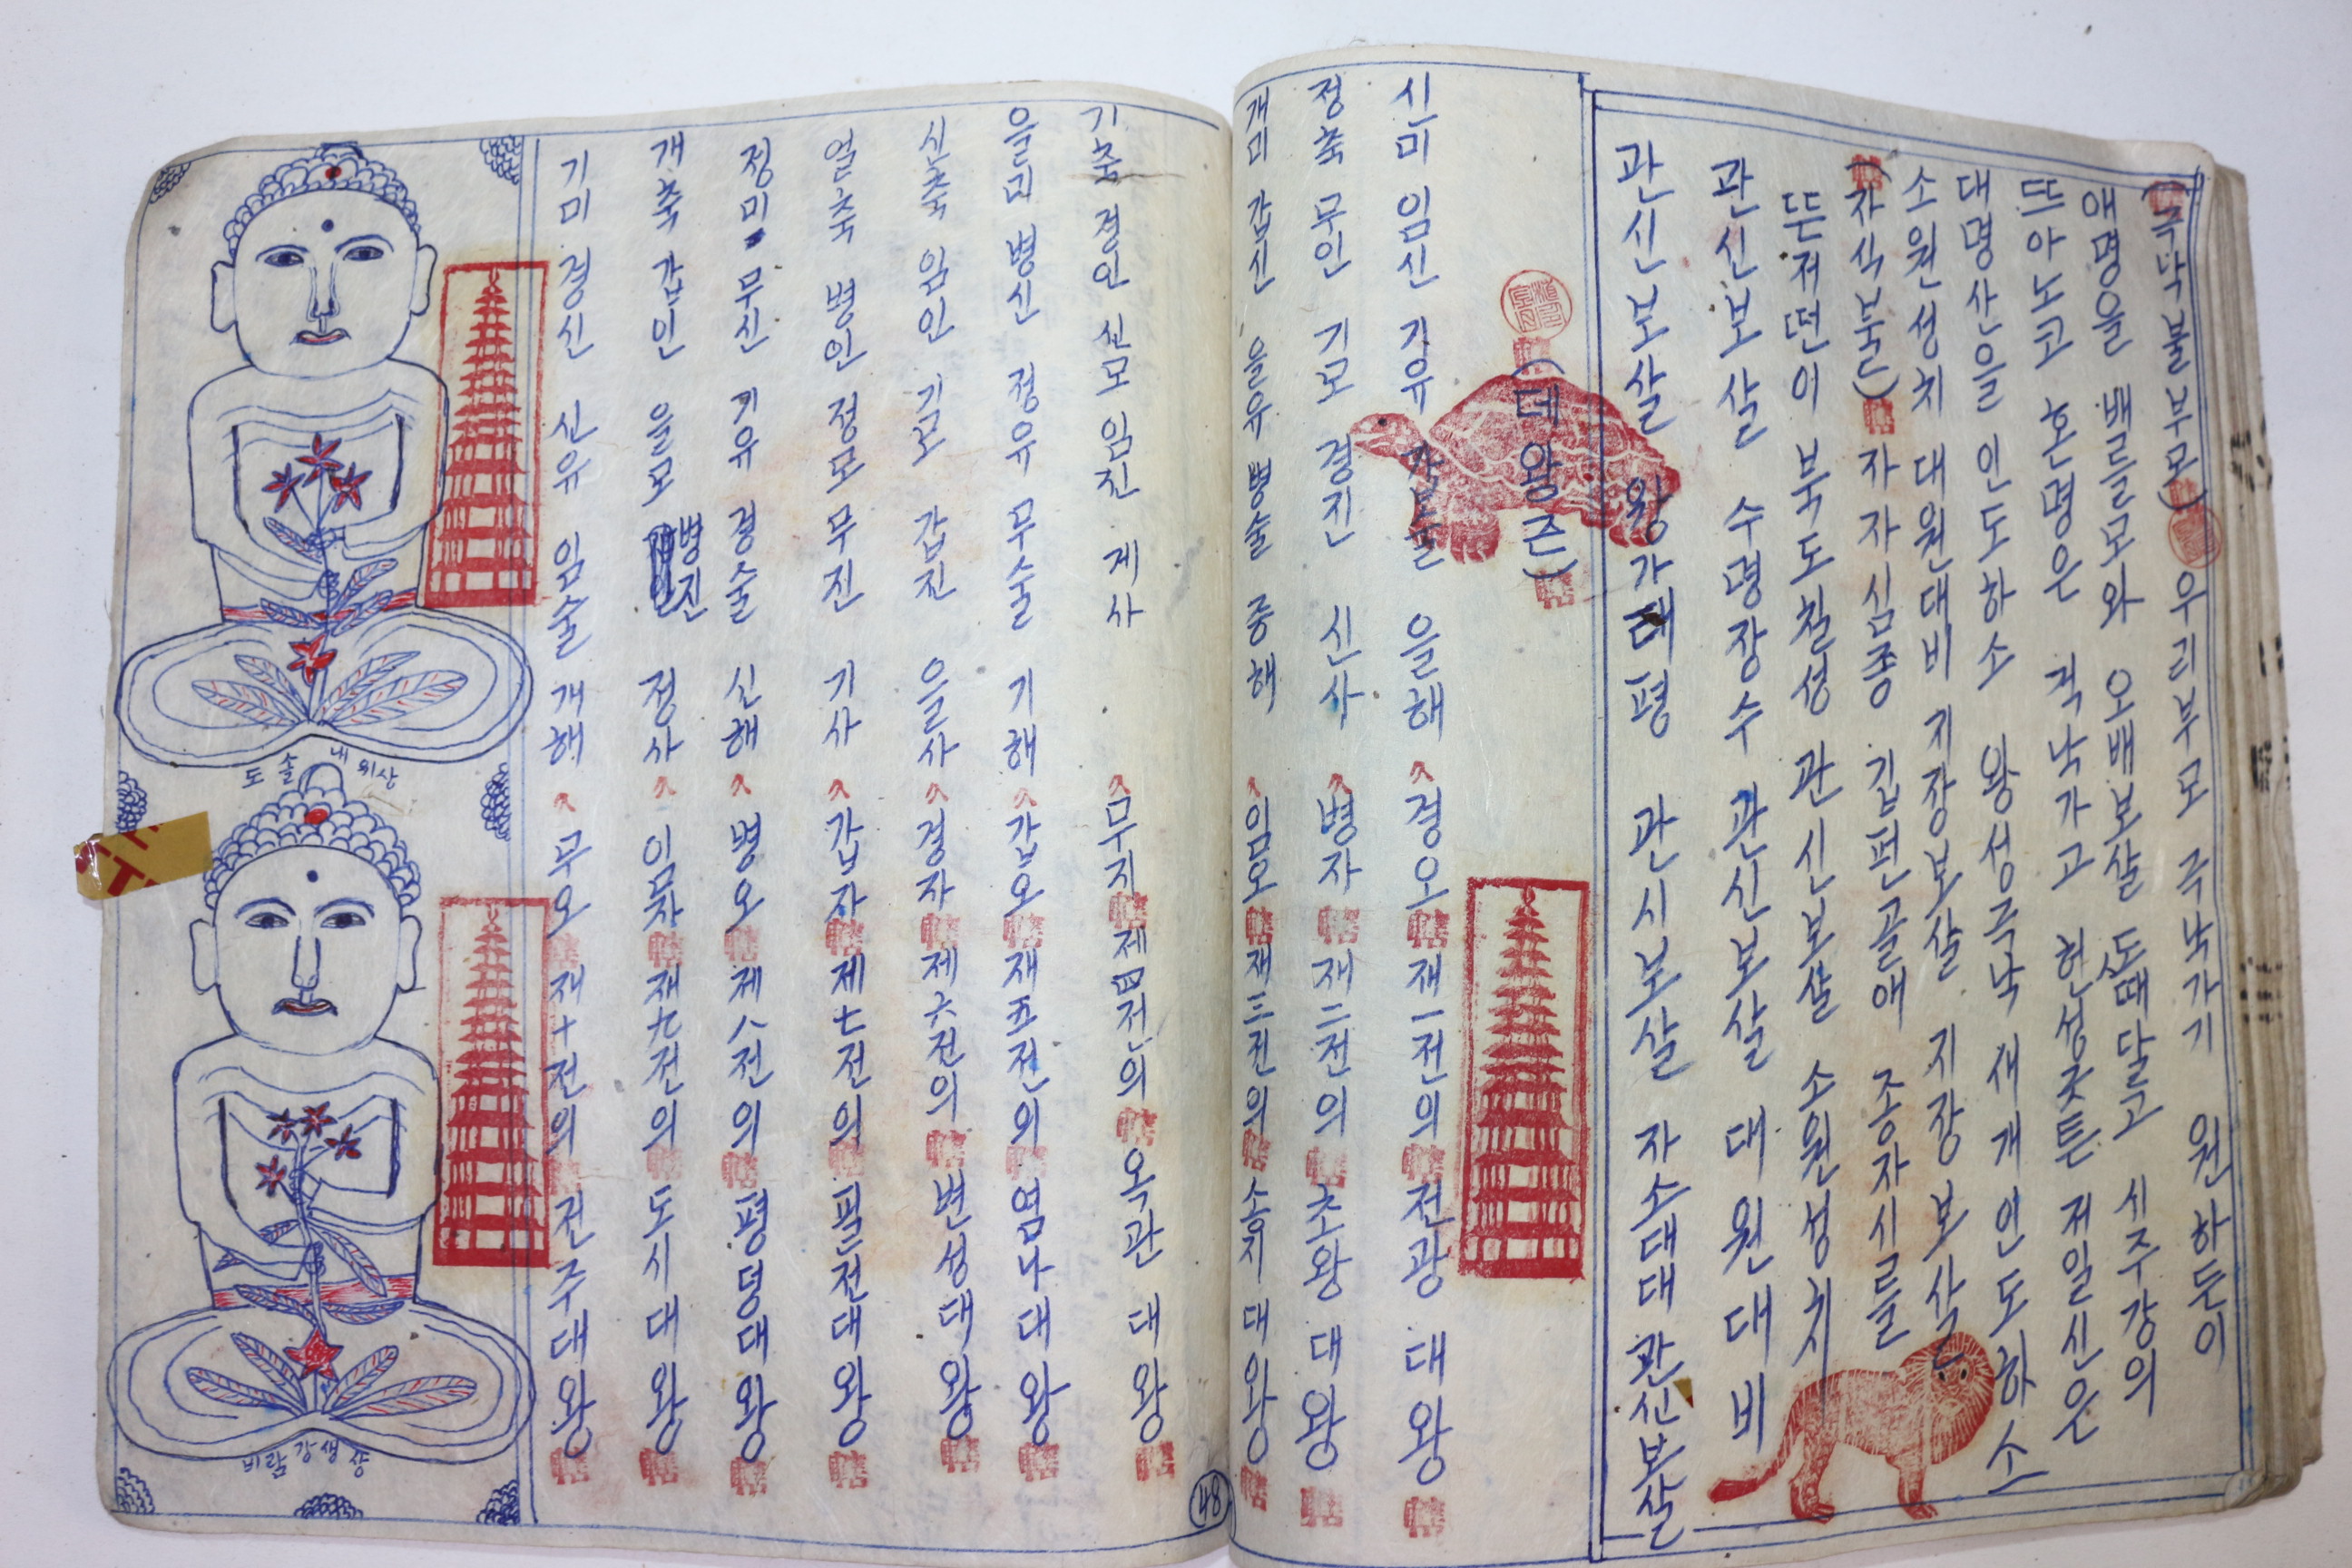 (극낙불부모) 우리부모 극낙가기 원하든이
애명을 배르모와 오배보살 도때달고 세주강의
뜨아노고 혼명은 걱낙가고 헌성굿튼 저일신은
대명산을 인도하소 왕성극낙 새개인도하소
소원성치 대원대비 지장보살 지장보살
(자식북은) 자자심종 깁편골애 종자시를
뜬저떤이 북도칠성 관신보살 소원성치
관신보살 수명장수 관신보살 대원대비
관신보살 왕가태평 관시보살 자소대대 관신보살
(데왕즌)
신미 임신 기유 갑술 을해 경오 재一전의 전광 대왕
정축 무인 기모 경진 신사 병자 재二전의 초왕 대왕
개미 갑신 을유 병술 중해 임오 재三전의 소지 대왕
기축 경인 신모 임진 계사 무자 제四전의 옥관 대왕
을미 병신 정유 무술 기해 갑오 재五전의 염나대왕
신축 임인 기모 갑진 을사 경자 제六전의 변성대왕
얼축 병인 정모 무진 기사 갑자 제七전의 대왕
정미 무신 기유 경술 신해 병오 제八전의 평덩대왕
개축 갑인 을모 병진 정사 임자 재九전의 도시대왕
기미 경신 신유 임술 개해 무오 재十전의 전주대왕
도솔내의상
비람강생상
48